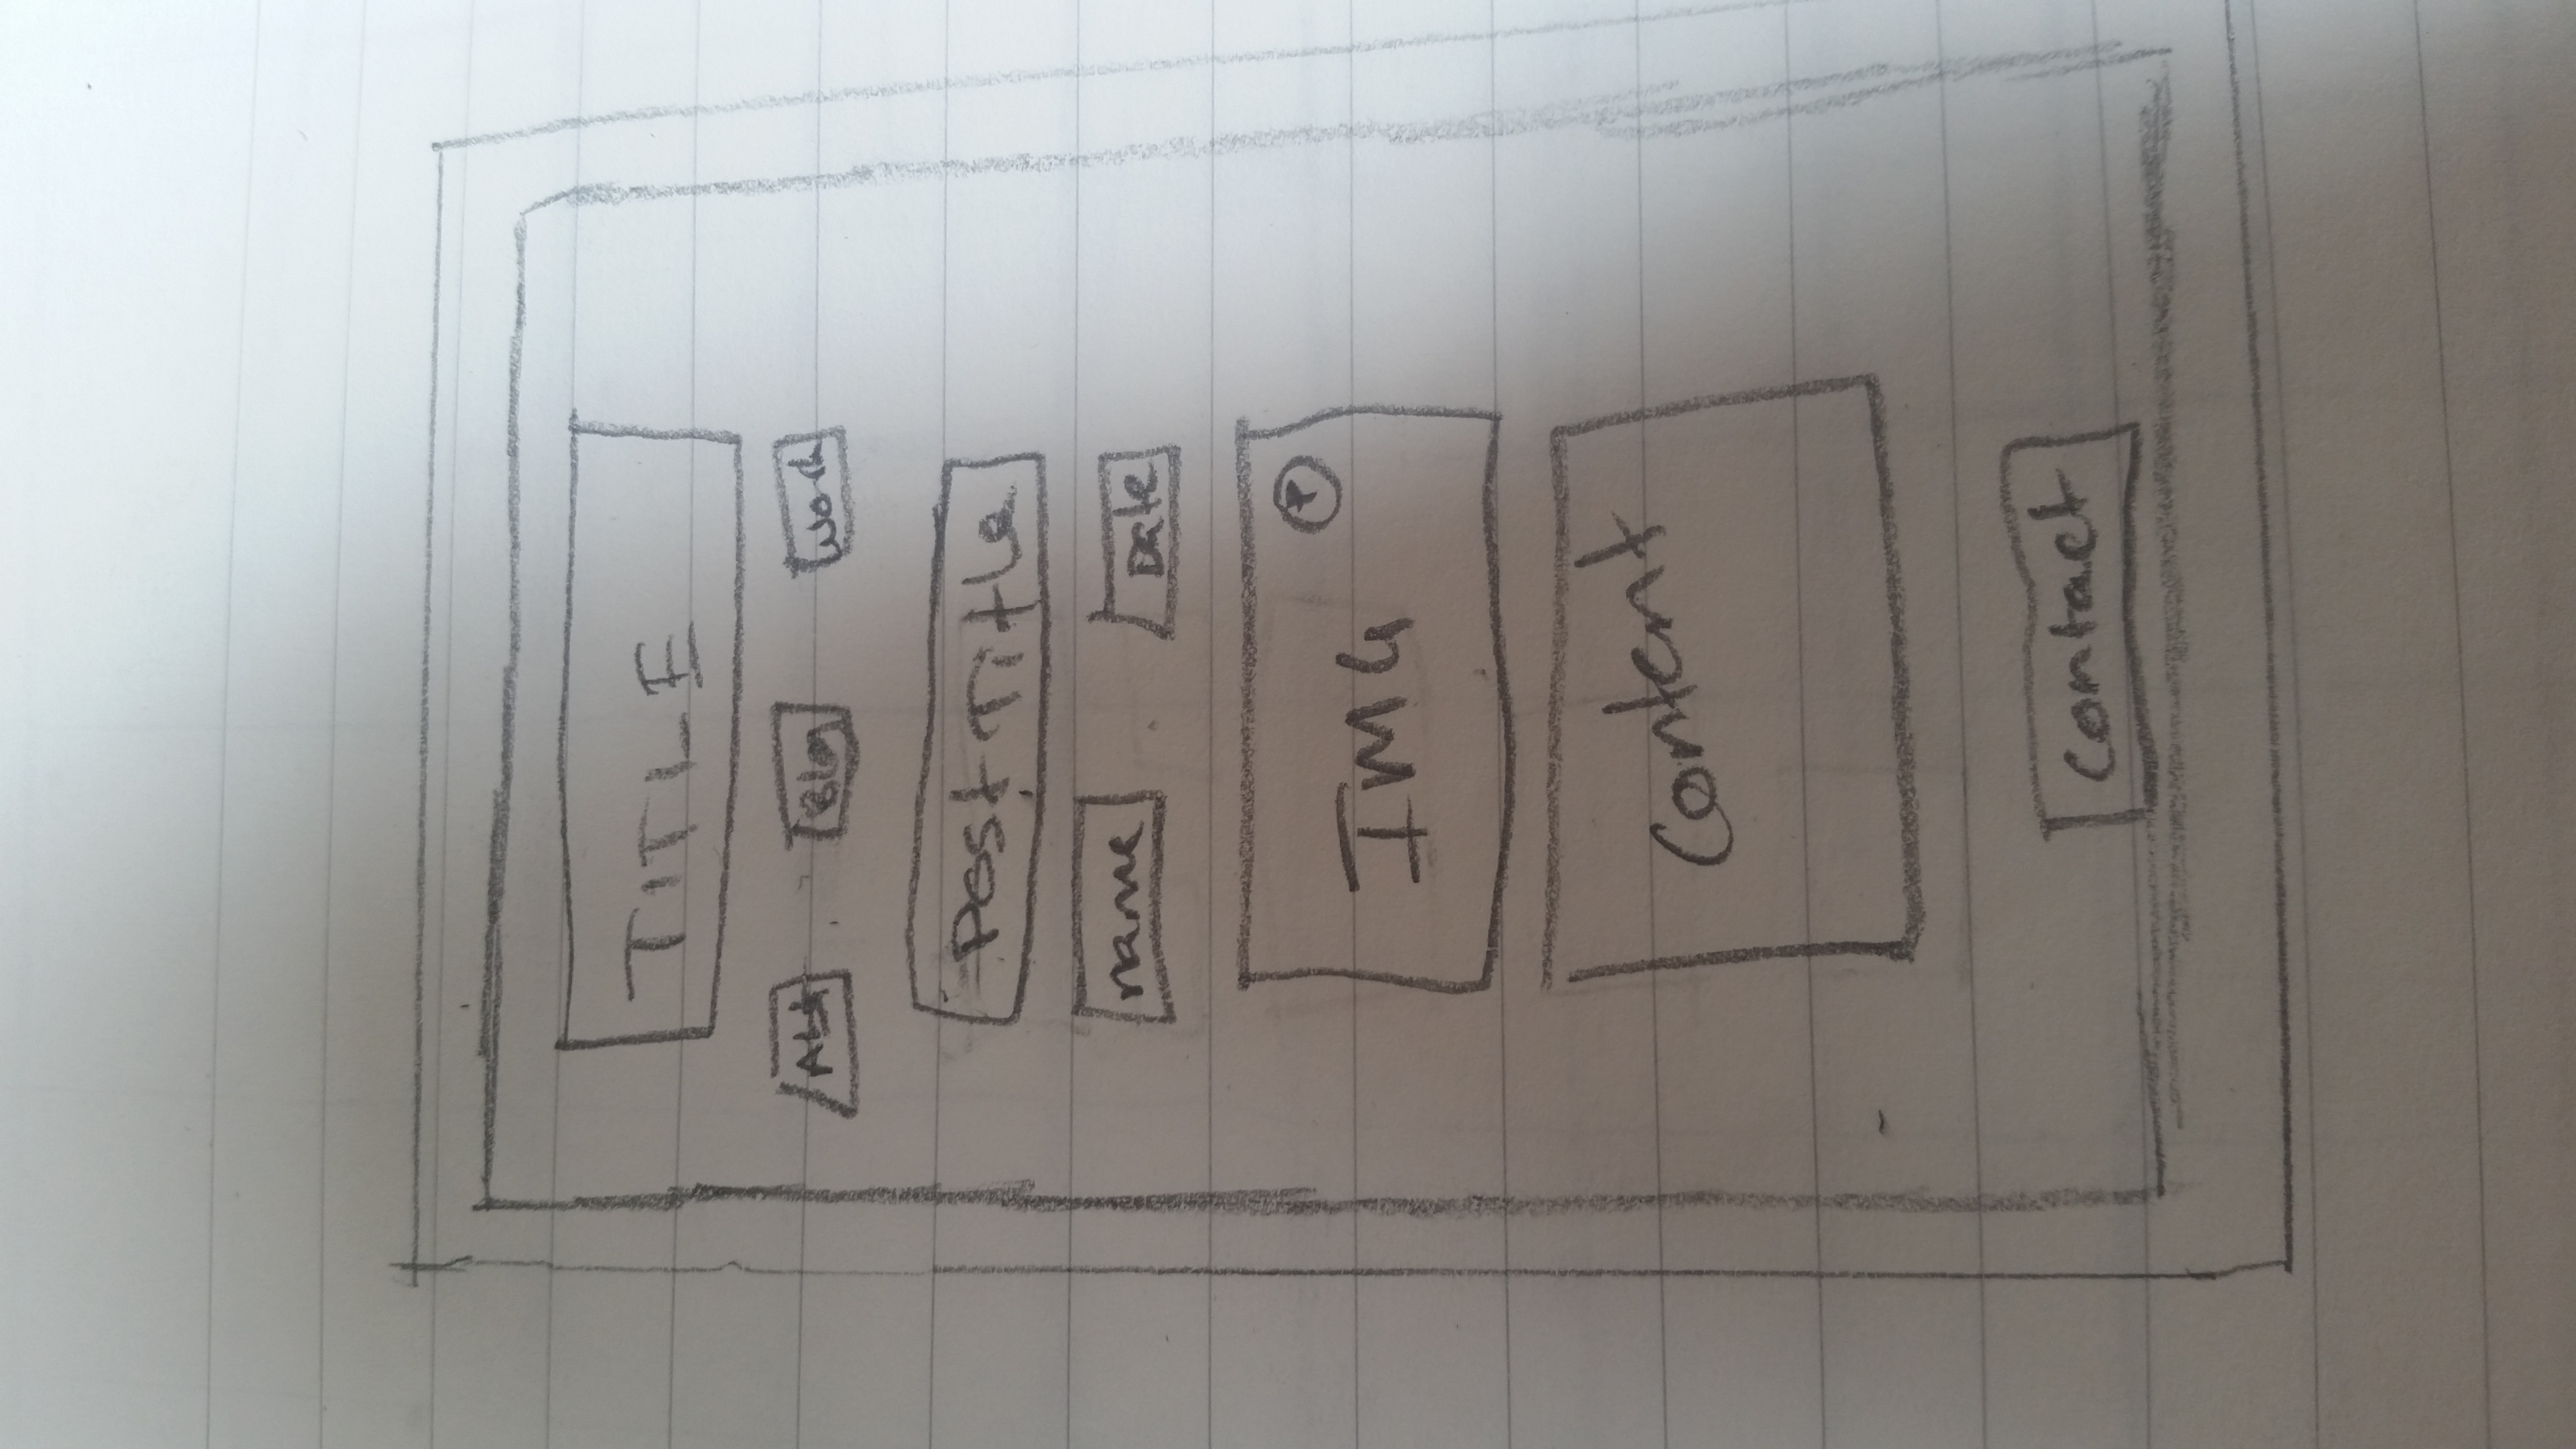 TITLE
Abt Blog Work
Post Title
name Date
P
IMG
Content
Contact